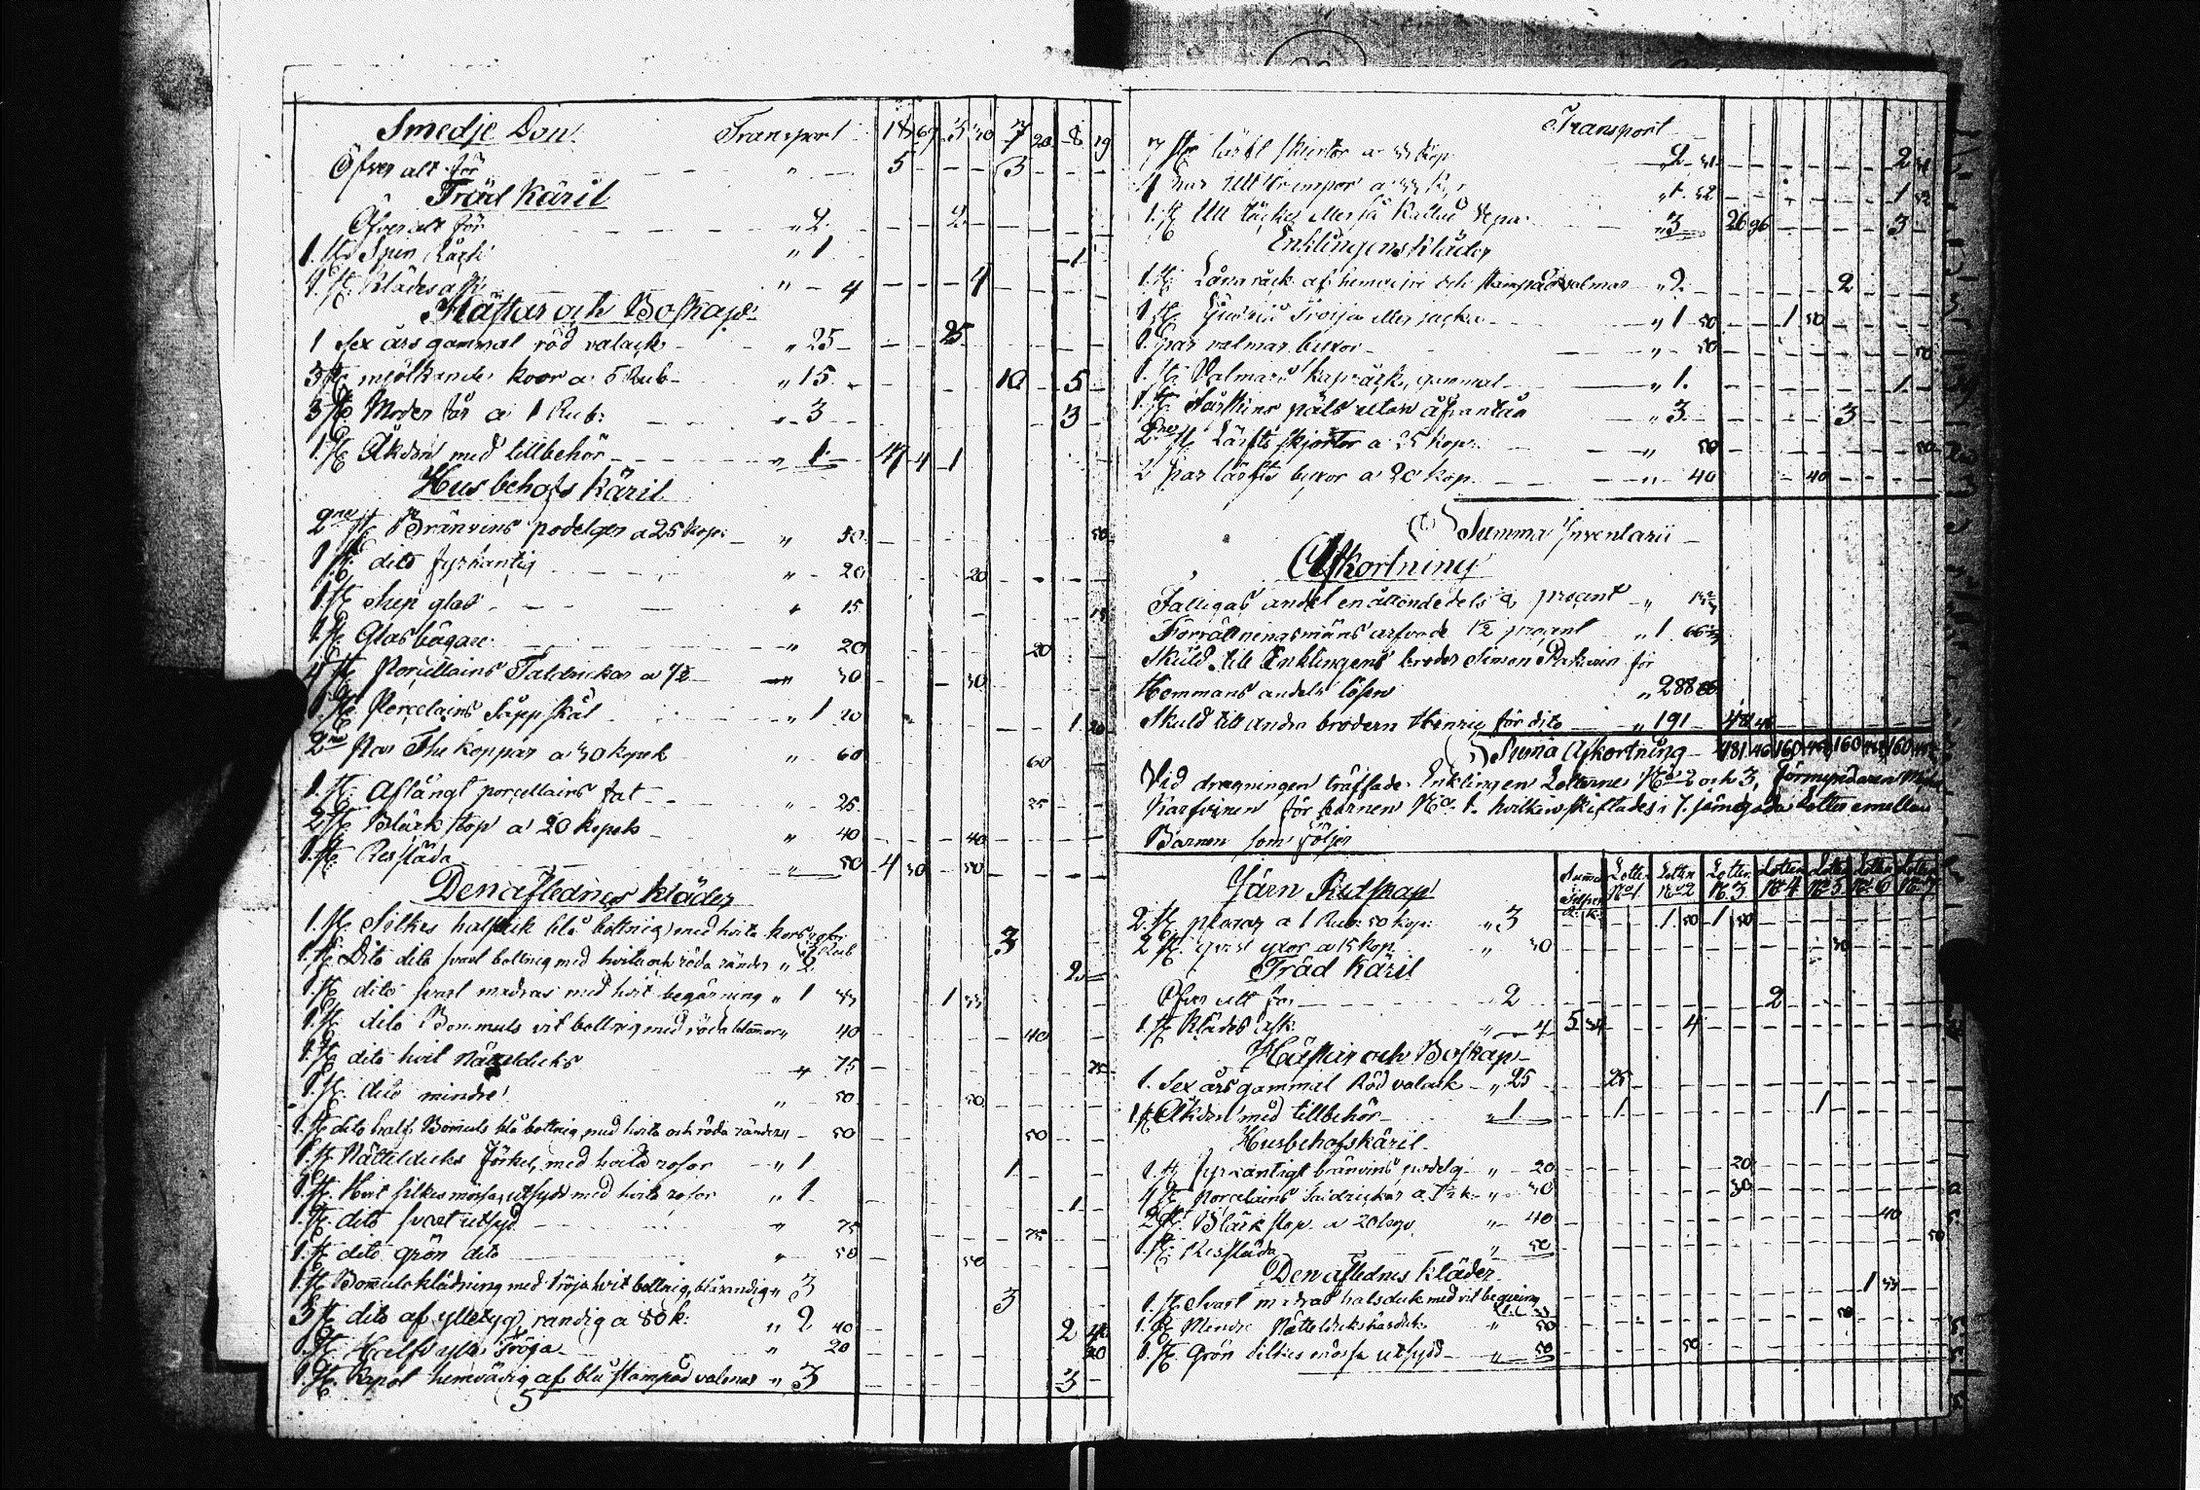 Smedje Don Transport 18 67 5 20 7 20 8 19
Öfver alt för " 5 3
Träd Käril
Öfver alt för " 2 2
1. St. Spin Råck " 1 1
1. St. Klädes ask " - 4 4
Hästar och Boskap
1 Sex års gammal röd valack " 25 25
3 St. mjölkande koor a 5 Rub " 15 10 5
3 St. Moder får a 1 Rub: " 3 3
1. St. Åkdon med tillbehör " 1 47 4 1
Husbehofs Käril
2ne St. Bränvins podelger a 25 kop: " 50 50
1 St. dito fyrkantig " 20 20
1. St. glas " 15 15
1. St. Glasbägare " 20 20
4 St. Porcellains Taldrickar a 7½ " 30 30
1. St. Porcelains Såpp Skål " 1 20 1 20
2ne Par The koppar a 30 kopek " 60 60
1. St. Aflångt porcellains fat " 25 25
2 St. Bläck stop a 20 kopek " 40 40
1. St. Res släda " 50 4 30 50
Den aflednes kläder
1. St. Silkes halsduk blå bottnig, med hvita 3 Rub 3
1. St. Dito dito svart bottnig med hvita och röda ränder " 2 2
1. St. dito svart madras med hvit begärning " 1 33 1 33
1. St. dito Bommuls vit bottnig med röda blommor " 40 40
1. St. dito hvit Nättelduks " 75 75
1. St. dito mindre " 50 50
1. St. dito half Bomuls blå bottnig, med hvita och röda ränder " - 50 50
1. St. Nättelducks Förkel, med hvita rosor " 1 1
1. St. Hvit silkes mössa utsydd med hvita rosor " 1 1
1. St. dito svart utsyd " 75 75
1. St. dito grön dito " 50 50
1. St. Bomuls klädning med tröja hvit bottnig, blårandig " 3 3
3 St. dito af ylletyg, randig a 80 k: " 2 40 2 40
1. St. Halfs ylle Tröja " 20 20
1. St. Kapot hemvävig af blå stampad valmar " 3 3
5
Transport
7 St. lärft skjortor a kop 2 31 2 31
4 par Ull strumpor a 1 32 1 32
1. St. Ull täcke eller så " 3 26 96 3
Enklingens Kläder
1. St. Långråck af hemväfvi och stampad valmar " 2 2
1. St. Tröija eller jacka " 1 50 1 50
1. par valmar buxor " 50 50
1. St. Valmars kapråck, gammal " 1. 1
1. St. Fårskins päls utan åfvantåg " 3 3
2ne St. Lärfts skjortor a 25 kop: " 50 50
2 par lärfts buxor a 20 kop " 40 40
Summa Inventarii
Afkortning
Fattigas andel en åttondedels procent "
Förrättningsmäns arfvode 1½ procent " 1. 66
Skuld till Enklingens broder Simon för
Hemmans andels lösen " 288
Skuld till andra brodern Henric för dito " 191 481 46
Summa Afkortning 481 46 160 160 160
Vid dragningen träffade Enklingen Lotterne No 2 och 3, Förmyndaren
för barnen No 1. hvilken skiftades i 7. jämngoda Lotter emellan
Barnen som följer
Järn Redskap Summa Silfver R: K: Lotten No 1 Lotten No 2 Lotten N. 3 Lotten No 4 Lotten No 5 Lotten No 6 Lotten No 7
2. St. plogar a 1 Rub: 50 kop: " 3 1 50 1 50
2 St. yxor a 15 kop " 30 30
Träd Käril
Öfver alt för 2 2
1. St. Klädes ask " 4 5 34 4
Hästar och Boskap
1. Sex års gammal Röd valack " 25 25
1 St. Åkdon med tillbehör " 1 1 1
Husbehofskäril
1 St. fyrkantigt bränvins podelg " 20 20
4 St. Porcelains Taldrickar a 7½ k " 30 30
2 St. Bläck stop a 20 kop " 40 40
1. St. Res släda " 50 50
Den aflednes Kläder
1. St. Svart madras halsduk med vit begering 1 33 1 33
1. St. Mindre Nätteldukshalsduk " 50 50
1. St. Grön silkes mössa utsydd " 50 50